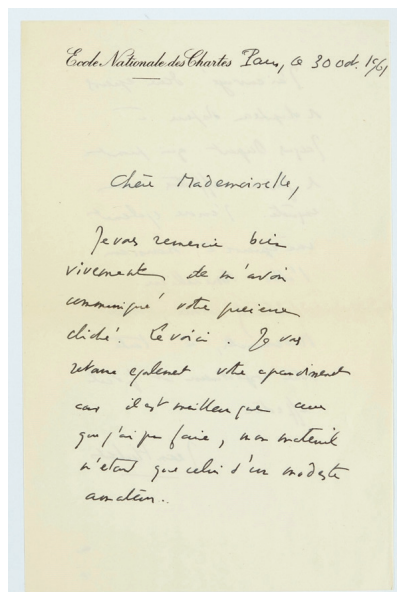 Ecole Nationale des Chartes Paris, le 30 oct. 1961
Chère Mademoiselle,
Je vous remercie bien
vivement de m'avoir
communiqué votre précieux
cliché. Le voici. Je vous
retourne également votre agrandissement
car il est meilleur que ceux
que j'ai pu faire, mon matériel
n'étant que celui d'un modeste
amateur.